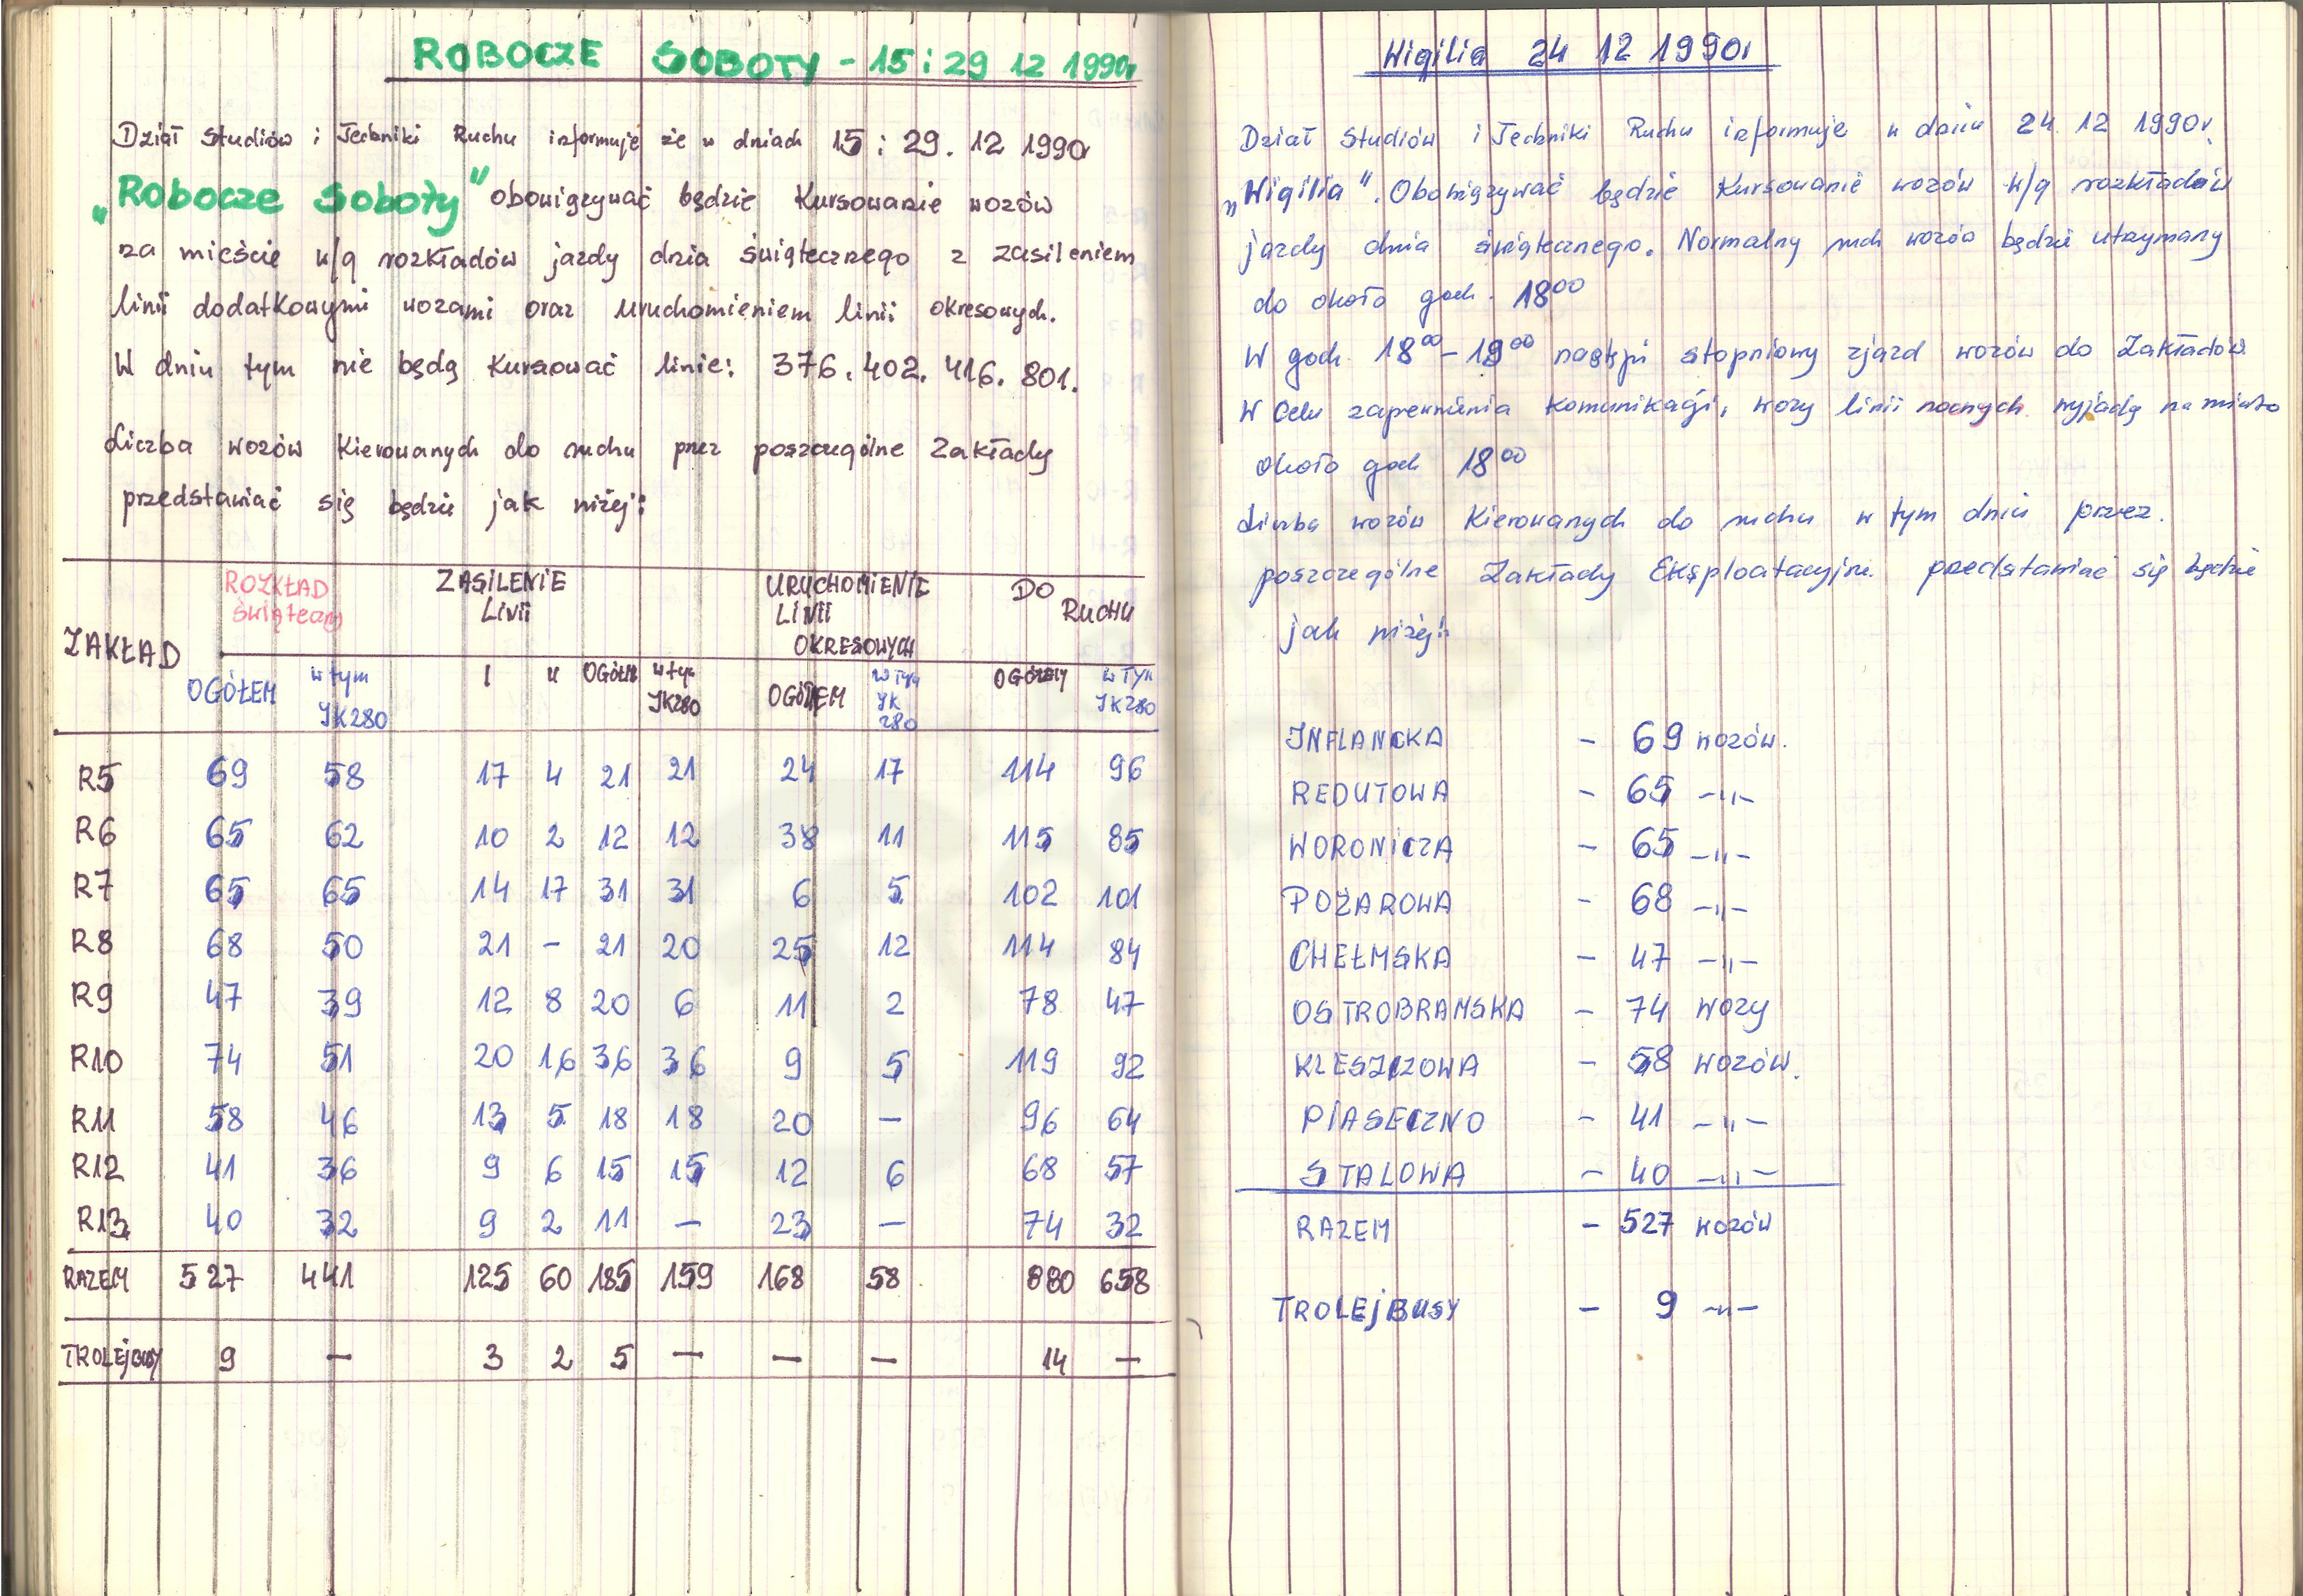 ROBOCZE SOBOTY - 15 i 29 12 1990r
Dział Studiów i Techniki Ruchu informuje że w dniach 15 i 29. 12 1990r
„Robocze Soboty" obowiązywać będzie Kursowanie wozów
na mieście w/g rozkładów jazdy dnia świątecznego z zasileniem
linii dodatkowymi wozami oraz uruchomieniem linii okresowych.
W dniu tym nie będą Kursować linie: 376. 402. 416. 801.
Liczba wozów Kierowanych do ruchu przez poszczególne Zakłady
przedstawiać się będzie jak niżej:
ZAKŁAD ROZKŁAD Świąteczny ZASILENIE LINII URUCHOMIENIE LINII OKRESOWYCH DO RUCHU
OGÓŁEM w tym JK280 I II OGÓŁEM w tym JK280 OGÓŁEM w tym JK 280 OGÓŁEM w tym JK280
R5 69 58 17 4 21 21 24 17 114 96
R6 65 62 10 2 12 12 38 11 115 85
R7 65 65 14 17 31 31 6 5 102 101
R8 68 50 21 - 21 20 25 12 114 84
R9 47 39 12 8 20 6 11 2 78 47
R10 74 51 20 16 36 36 9 5 119 92
R11 58 46 13 5 18 18 20 - 96 64
R12 41 36 9 6 15 15 12 6 68 57
R13 40 32 9 2 11 - 23 - 74 32
RAZEM 527 441 125 60 185 159 168 58 880 658
TROLEJBUSY 9 - 3 2 5 - - - 14 -
Wigilia 24 12 1990r
Dział Studiów i Techniki Ruchu informuje w dniu 24. 12 1990r.
„Wigilia". Obowiązywać będzie Kursowanie wozów w/g rozkładów
jazdy dnia świątecznego. Normalny ruch wozów będzie utrzymany
do około godz. 18⁰⁰
W godz. 18⁰⁰ - 19⁰⁰ nastąpi stopniowy zjazd wozów do Zakładów.
W Celu zapewnienia Komunikacji, wozy linii nocnych wyjadą na miasto
około godz 18⁰⁰
Liczba wozów Kierowanych do ruchu w tym dniu przez.
poszczególne Zakłady Eksploatacyjne przedstawiać się będzie
jak niżej:
INFLANCKA - 69 wozów.
REDUTOWA - 65 -"-
WORONICZA - 65 -"-
POŻAROWA - 68 -"-
CHEŁMSKA - 47 -"-
OSTROBRAMSKA - 74 wozy
KLESZCZOWA - 58 wozów.
PIASECZNO - 41 -"-
STALOWA - 40 -"-
RAZEM - 527 wozów
TROLEJBUSY - 9 -"-